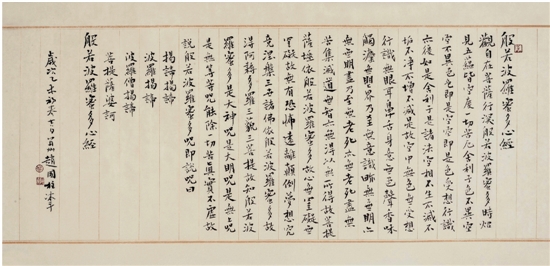 般若波羅蜜多心經
觀自在菩薩行深般若波羅蜜多時炤
見五蘊皆空度一切苦厄舍利子色不異空
空不異色色即是空空即是色受想行識
亦復如是舍利子是諸法空相不生不滅不
垢不淨不增不減是故空中无色无受想
行識无眼耳鼻舌身意无色聲香味
觸法无眼界乃至无意識界无无明亦
无无明盡乃至无老死亦无老死盡无
苦集滅道无智亦无得以无所得故菩提
薩埵依般若波羅蜜多故心无罣礙无
罣礙故无有恐怖遠離顛倒夢想究
竟涅槃三世諸佛依般若波羅蜜多故
得阿耨多羅三藐三菩提故知般若波
羅蜜多是大神咒是大明咒是无上咒
是无等等咒能除一切苦真實不虛故
說般若波羅蜜多咒即說咒曰
揭諦揭諦
波羅揭諦
波羅僧揭諦
菩提薩婆訶
般若波羅蜜多心經
歲次乙未初冬 趙國 沐手